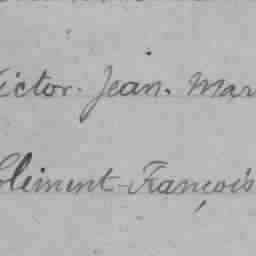 Victor. Jean. Mar
Clément-François